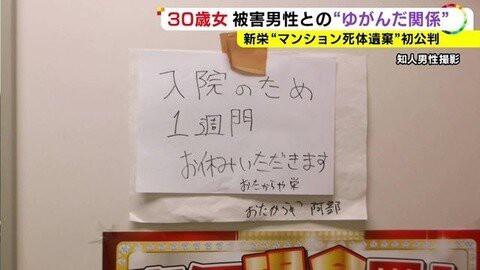 30歳女 被害男性との“ゆがんだ関係”
新栄“マンション死体遺棄”初公判
知人男性撮影
入院のため
1週門
お休みいただきます
おたからや栄
おたからや 阿部